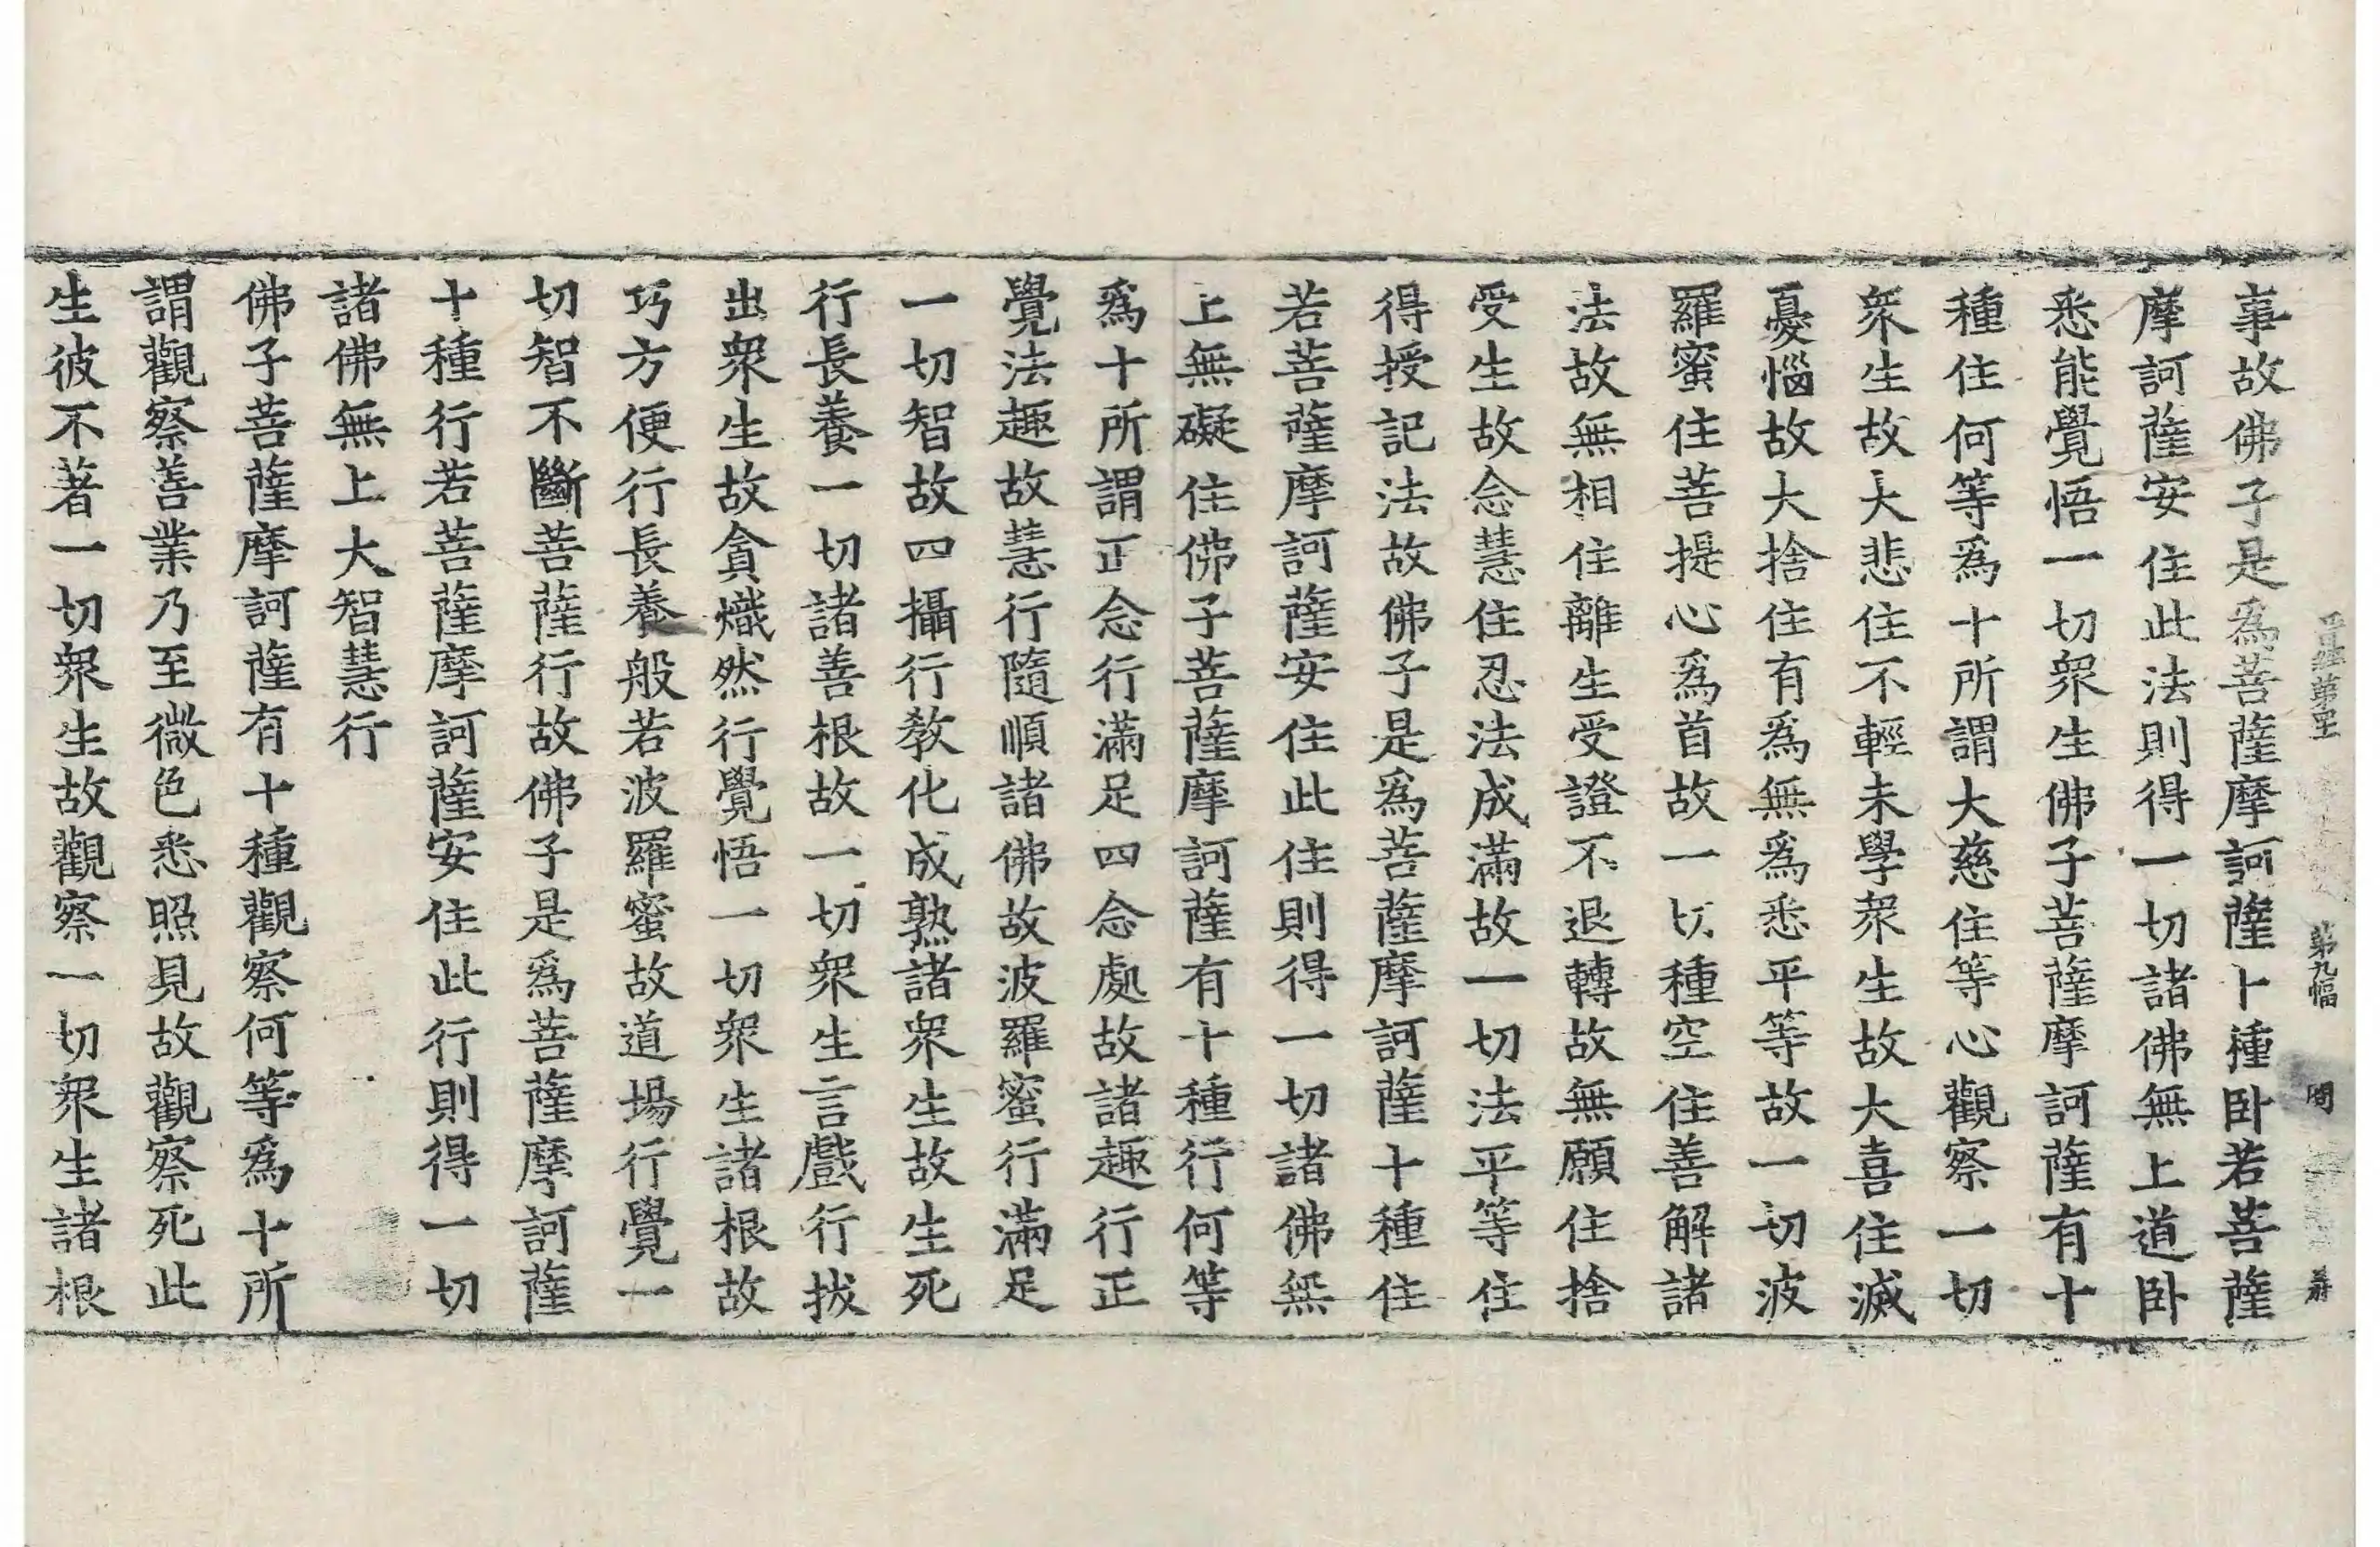 第九幅
事故佛子是爲菩薩摩訶薩十種卧若菩薩
摩訶薩安住此法則得一切諸佛無上道卧
悉能覺悟一切衆生佛子菩薩摩訶薩有十
種住何等爲十所謂大慈住等心觀察一切
衆生故大悲住不輕未學衆生故大喜住滅
憂惱故大捨住有爲無爲悉平等故一切波
羅蜜住菩提心爲首故一切種空住善解諸
法故無相住離生受證不退轉故無願住捨
受生故念慧住忍法成滿故一切法平等住
得授記法故佛子是爲菩薩摩訶薩十種住
若菩薩摩訶薩安住此住則得一切諸佛無
上無礙住佛子菩薩摩訶薩有十種行何等
爲十所謂正念行滿足四念處故諸趣行正
覺法趣故慧行隨順諸佛故波羅蜜行滿足
一切智故四攝行教化成熟諸衆生故生死
行長養一切諸善根故一切衆生言戲行拔
出衆生故貪熾然行覺悟一切衆生諸根故
巧方便行長養般若波羅蜜故道場行覺一
切智不斷菩薩行故佛子是爲菩薩摩訶薩
十種行若菩薩摩訶薩安住此行則得一切
諸佛無上大智慧行
佛子菩薩摩訶薩有十種觀察何等爲十所
謂觀察善業乃至微色悉照見故觀察死此
生彼不著一切衆生故觀察一切衆生諸根